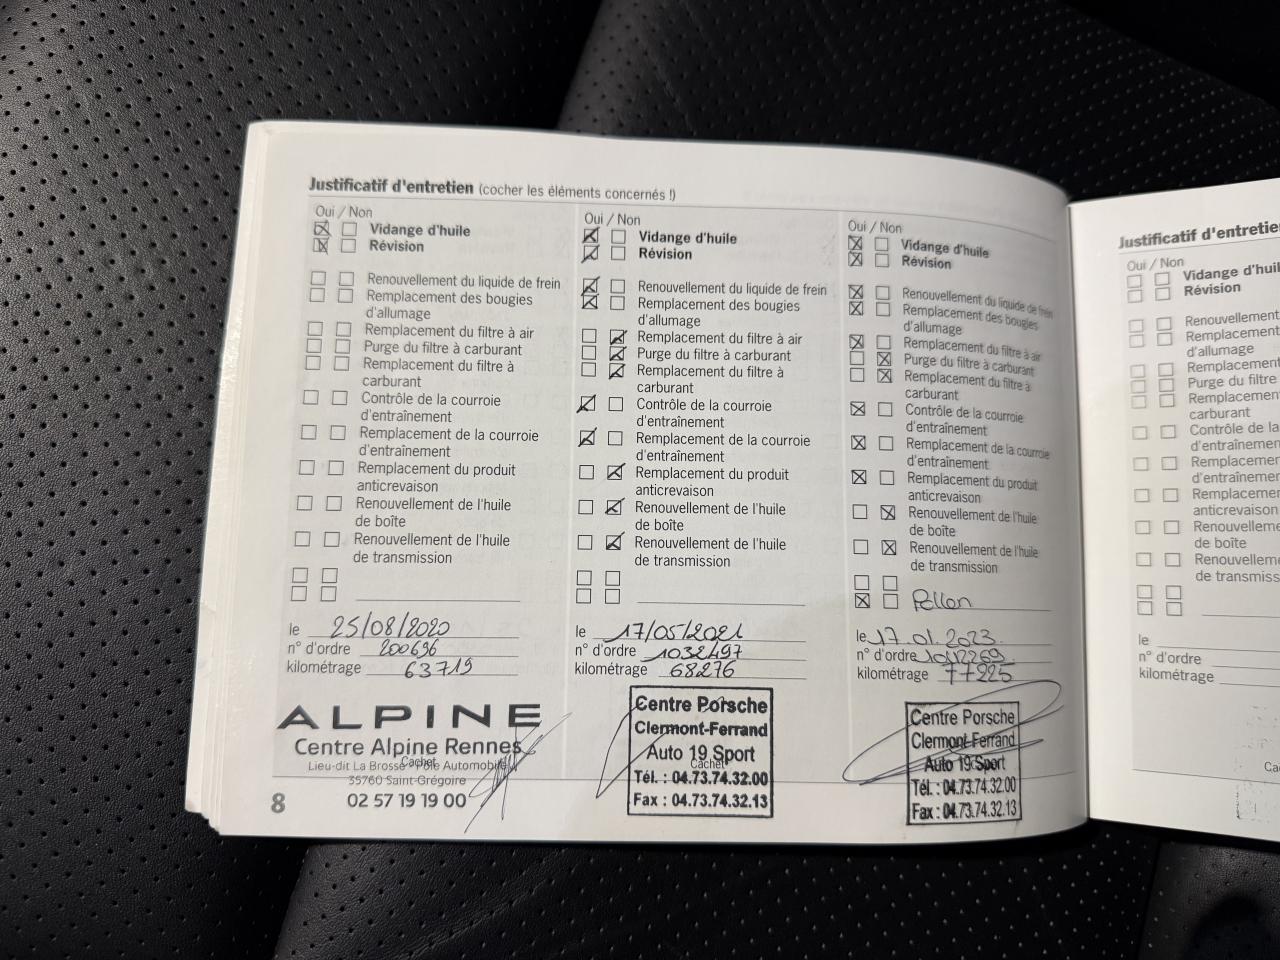 Justificatif d'entretien (cocher les éléments concernés !)
Oui / Non
Vidange d'huile
Révision
Renouvellement du liquide de frein
Remplacement des bougies
d'allumage
Remplacement du filtre à air
Purge du filtre à carburant
Remplacement du filtre à
carburant
Contrôle de la courroie
d'entraînement
Remplacement de la courroie
d'entraînement
Remplacement du produit
anticrevaison
Renouvellement de l'huile
de boîte
Renouvellement de l'huile
de transmission
le 25/08/2020
n° d'ordre 200696
kilométrage 63719
ALPINE
Centre Alpine Rennes
Cachet
Lieu-dit La Brosse - Pôle Automobile
35760 Saint-Grégoire
02 57 19 19 00
8
Oui / Non
Vidange d'huile
Révision
Renouvellement du liquide de frein
Remplacement des bougies
d'allumage
Remplacement du filtre à air
Purge du filtre à carburant
Remplacement du filtre à
carburant
Contrôle de la courroie
d'entraînement
Remplacement de la courroie
d'entraînement
Remplacement du produit
anticrevaison
Renouvellement de l'huile
de boîte
Renouvellement de l'huile
de transmission
le 17/05/2021
n° d'ordre 1032497
kilométrage 68276
Centre Porsche
Clermont-Ferrand
Auto 19 Sport
Cachet
Tél. : 04.73.74.32.00
Fax : 04.73.74.32.13
Oui / Non
Vidange d'huile
Révision
Renouvellement du liquide de frein
Remplacement des bougies
d'allumage
Remplacement du filtre à air
Purge du filtre à carburant
Remplacement du filtre à
carburant
Contrôle de la courroie
d'entraînement
Remplacement de la courroie
d'entraînement
Remplacement du produit
anticrevaison
Renouvellement de l'huile
de boîte
Renouvellement de l'huile
de transmission
Pollen
le 17.01.2023
n° d'ordre
kilométrage 77225
Centre Porsche
Clermont-Ferrand
Auto 19 Sport
Tél. : 04.73.74.32.00
Fax : 04.73.74.32.13
Justificatif d'entretie
Oui / Non
Vidange d'huil
Révision
Renouvellement
Remplacement
d'allumage
Remplacement
Purge du filtre
Remplacement
carburant
Contrôle de la
d'entraînement
Remplacement
d'entraînement
Remplacement
anticrevaison
Renouvellement
de boîte
Renouvellement
de transmiss
le
n° d'ordre
kilométrage
Ca